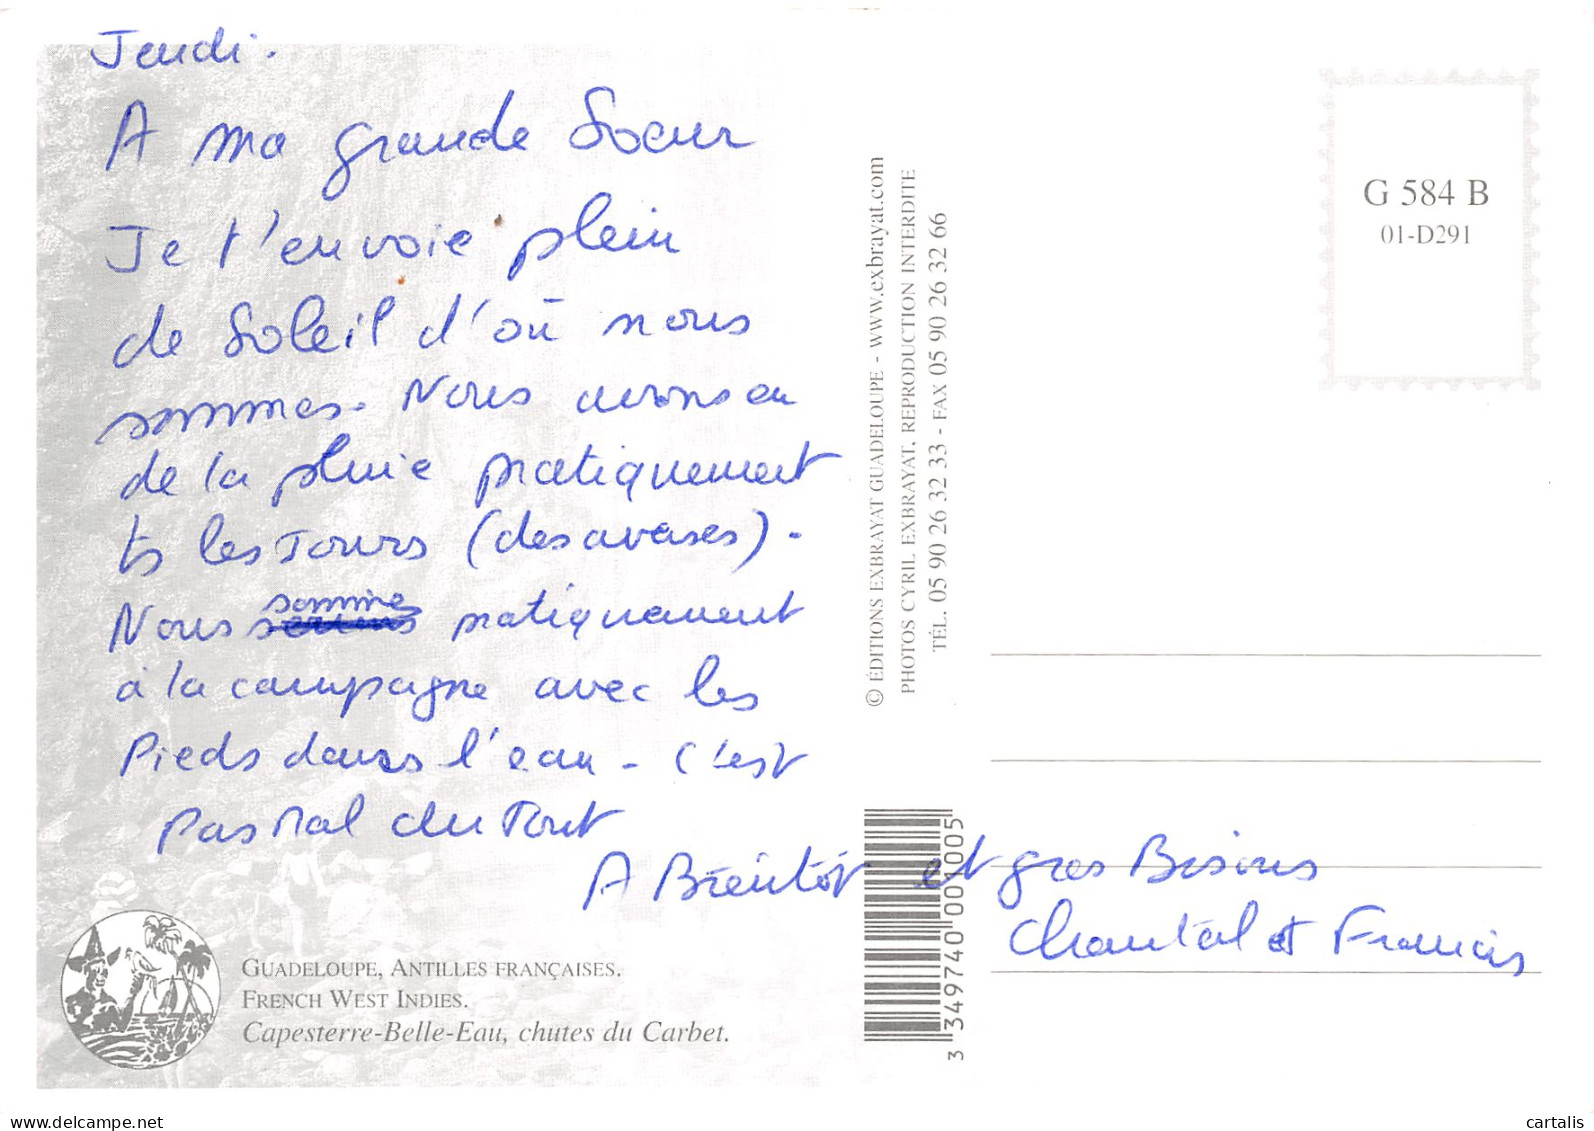 Jeudi.
A ma grande Soeur
Je t'envoie plein
de Soleil d'où nous
sommes. Nous avons eu
de la pluie pratiquement
ts les Jours (des averses).
Nous sommes pratiquement
à la campagne avec les
Pieds dans l'eau - C'est
Pas Mal du Tout
A Bientôt et gros Bisous
Chantal et Francis
GUADELOUPE, ANTILLES FRANÇAISES.
FRENCH WEST INDIES.
Capesterre-Belle-Eau, chutes du Carbet.
© ÉDITIONS EXBRAYAT GUADELOUPE - www.exbrayat.com
PHOTOS CYRIL EXBRAYAT. REPRODUCTION INTERDITE
TÉL. 05 90 26 32 33 - FAX 05 90 26 32 66
3 349740 001005
G 584 B
01-D291
www.delcampe.net
cartalis